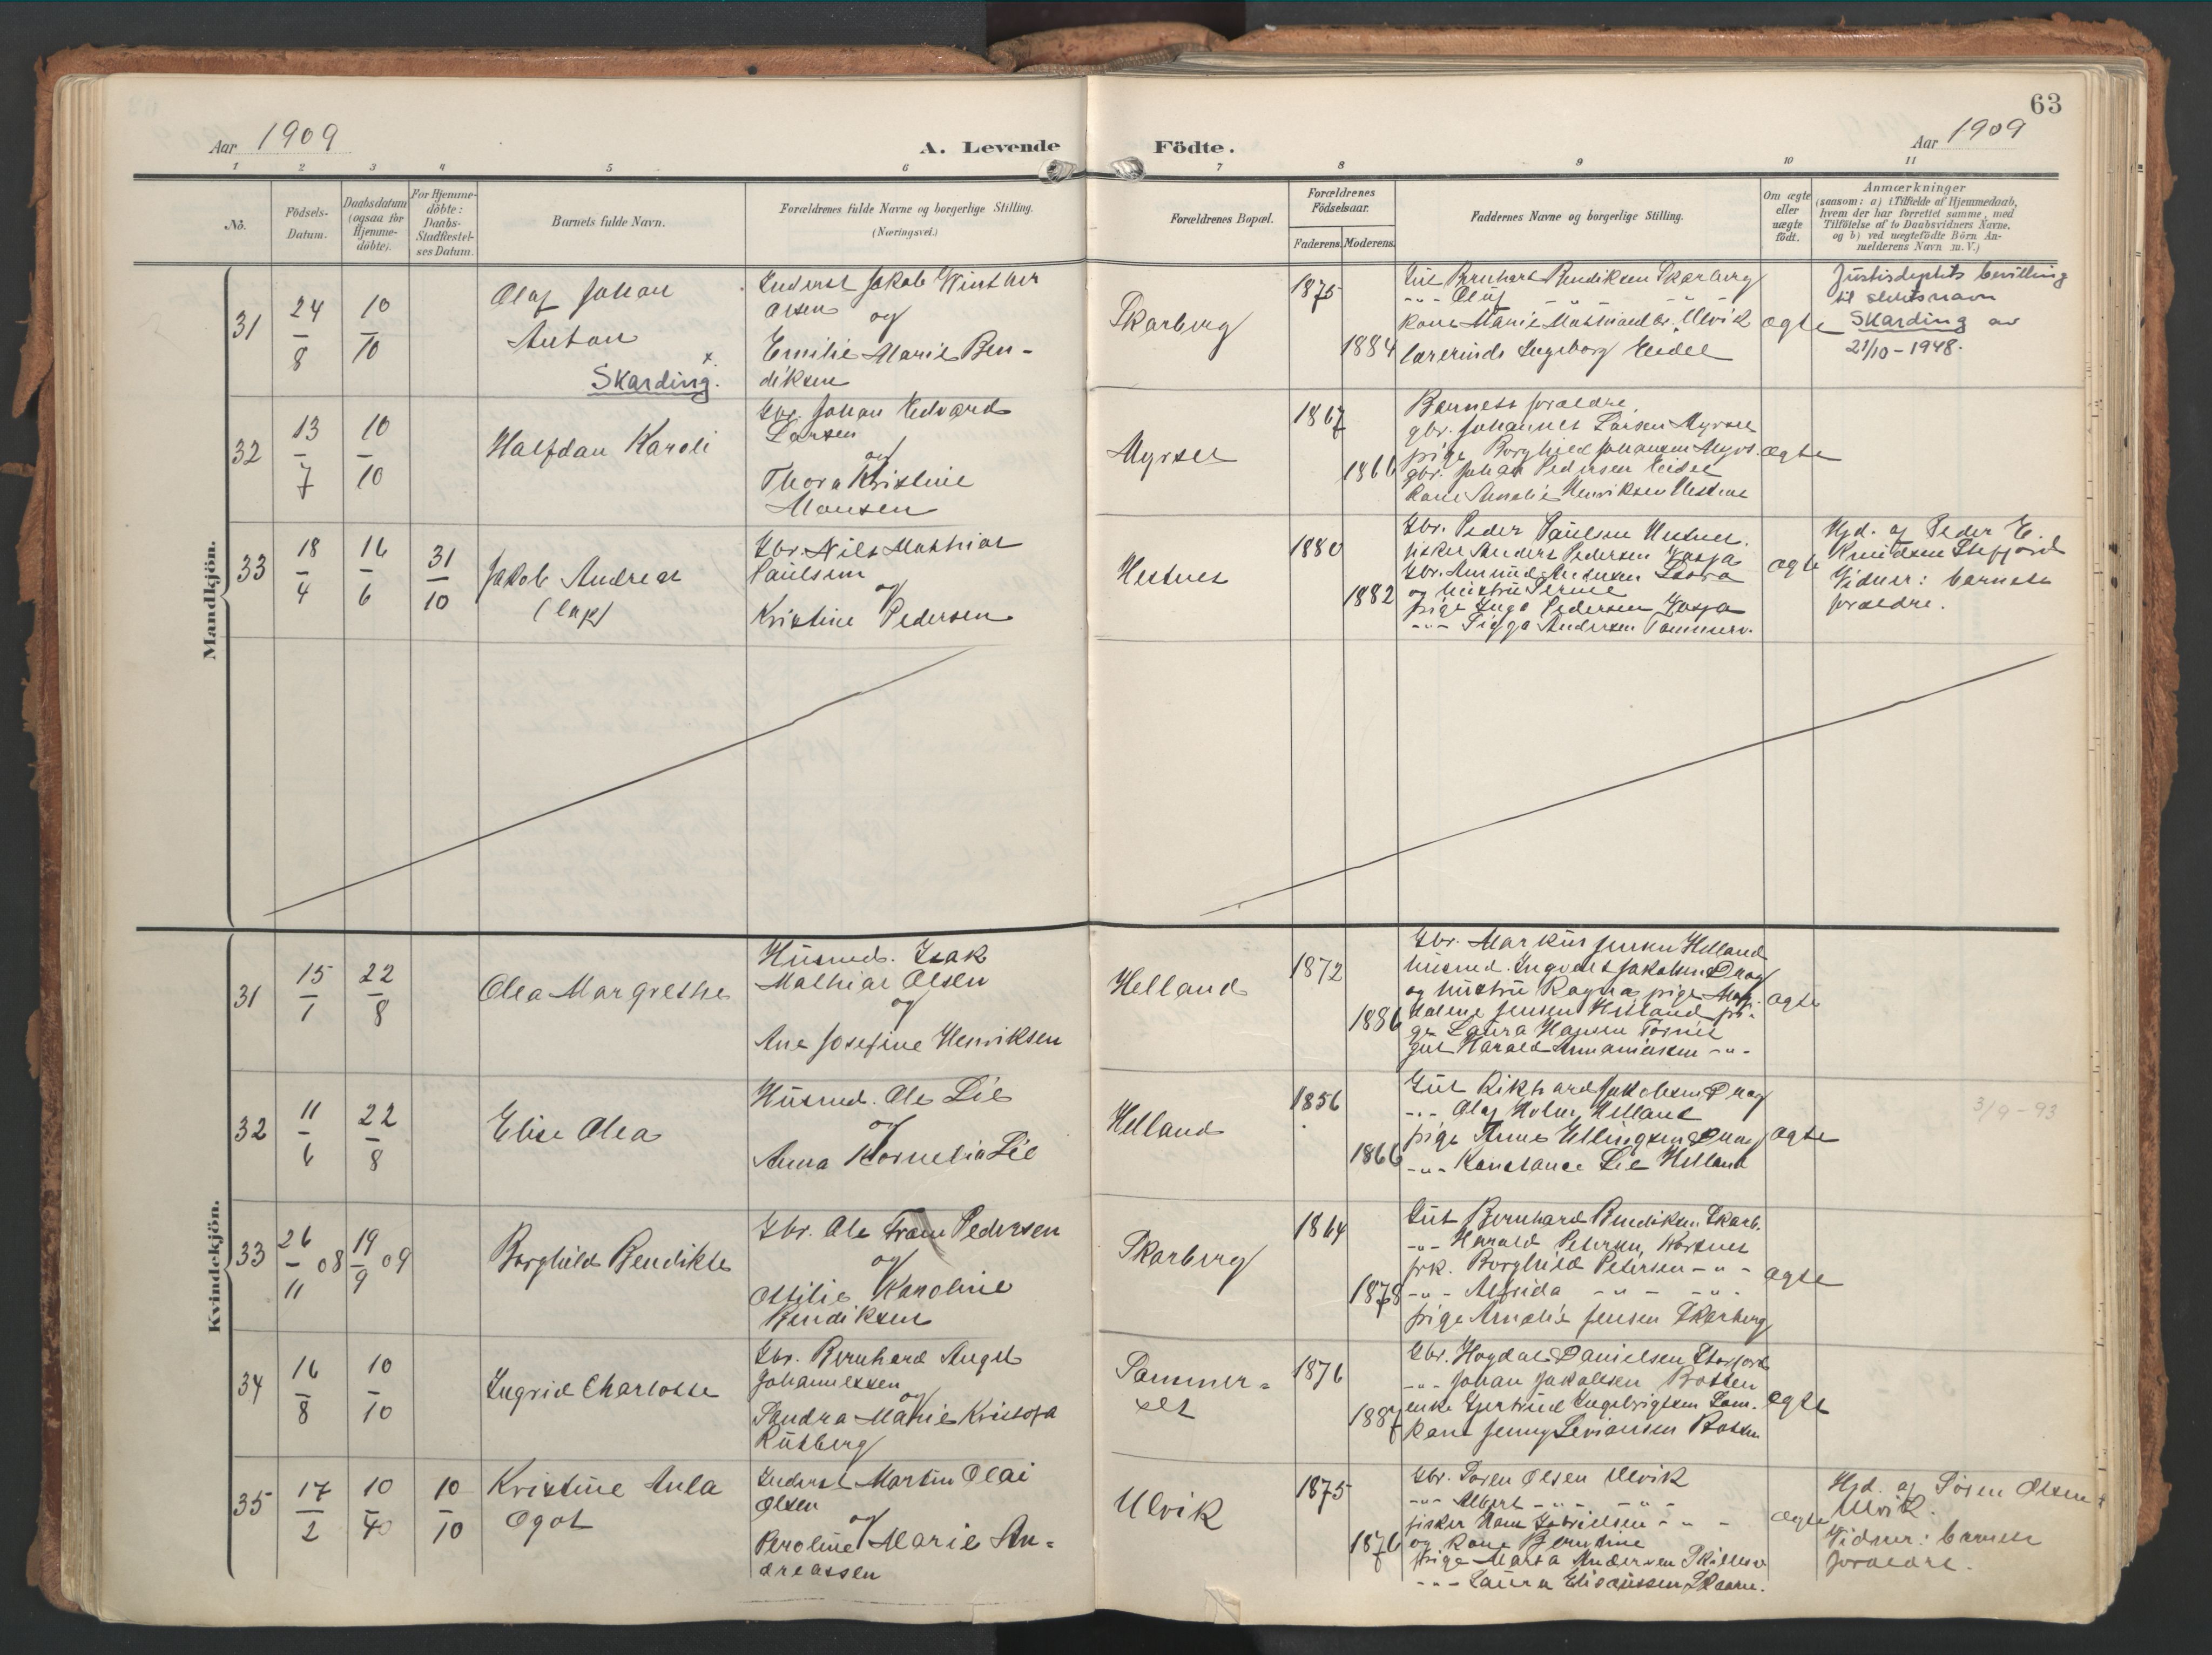 63
Aar 1909
A. Levende
Födte.
Aar 1909
1 2 3 4 5 6 7 8 9 10 11
No.
Födsels-
Datum.
Daabsdatum
(ogsaa for
Hjemme-
döbte).
For Hjemme-
döbte:
Daabs-
Stadfæstel-
ses Datum.
Barnets fulde Navn.
Forældrenes fulde Navne og borgerlige Stilling.
(Næringsvei.)
Forældrenes Bopæl.
Forældrenes
Födselsaar.
Faderens. Moderens.
Faddernes Navne og borgerlige Stilling.
Om ægte
eller
uægte
födt.
Anmærkninger
(saasom: a) i Tilfælde af Hjemmedaab,
hvem der har forrettet samme, med
Tilföielse af to Daabsvidners Navne.
og b) ved uægtefödte Börn An-
melderens Navn m. V.)
Mandkjön.
31
24/8
10/10
Olaf Johan
Anton
Skarding. x
Inderst Jakob Winther
Olsen og
Emilie Marie Ben-
diksen
Skarberg
1875
1884
Gut Bernhart Bendiksen Skarberg
-"- Oluf -"- -"-
Kone Marie Ulvik
lærerinde Ingeborg Eidet
ægte
Justisdeptets bevilling
til slektsnavn
Skarding av
21/10-1948.
32
13/7
10/10
Halfdan Karoli
Gbr. Johan Edvard
Larsen
og
Thora Kristine
Monsen
Myrset
1867
1866
Barnets forældre,
gbr. Johannes Larsen Myrset
pige Borghild Johansen Myrs.
gbr. Johan Pedersen Eidet
Kone Amalie Henriksen Hestnes
ægte
33
18/4
16/6
31/10
Jakob Andreas
(lap)
Gbr. Nils Mathias
Paulsen
og
Kristine Pedersen
Hestnes
1880
1882
Gbr. Peder Paulsen Hestnes.
fisker Anders Pedersen
Gbr. Amund Andersen
og hustru
pige Inga Pedersen
-"- Sigga Andersen
ægte
Hjd. af Peder E.
Knudsen Stefjord
Vidner: barnets
forældre.
Kvindekjön.
31
15/7
22/8
Olea Margrethe
Husmd. Isak
Mathias Olsen
og
Ane Josefine Henriksen
Helland
1872
1886
Gbr. Markus Jensen Helland
husmd. Ingvald Jakobsen Drag
og hustru Ragna, pige
Halene Jensen Helland, pi-
ge Laura Hansen
gut Harald -"-
ægte
32
11/6
22/8
Elise Olea
Husmd. Ole Lie
og
Anna Kornelia Lie
Helland
1856
1866
Gut Rikhard Jakobsen Drag
-"- Olaf Holm, Helland
pige Anne Ellingsen Drag
-"- Konstance Lie Helland
ægte
3/9-93
33
26/11 08
19/9 09
Borghild Bendikte
Gbr. Ole Fram Pedersen
og
Ottilie Karoline
Bendiksen
Skarberg
1864
1878
Gut Bernhard Bendiksen Skarb.
-"- Harald Petersen, Korsnes
frk. Borghild Petersen -"-
-"- Alfrida -"- -"-
pige Amalie Jensen Skarberg
ægte
34
16/8
10/10
Ingrid Charlotte
Gbr. Bernhard Angel
Johannessen
og
Sandra Marie Kristofa
Rütberg
Sommer-
set
1876
1887
Gbr. Hagdal Danielsen Storfjord
-"- Johan Jakobsen Botten
enke Gjertrud Ingebrigtsen Som.
Kone Jenny Sivransen Botten
ægte
35
17/2
10/10
10/10
Kristine Aula
Ogot
Inderst Martin Olai
Olsen
og
Peroline Marie An-
dreassen
Ulvik
1875
1876
Gbr. Søren Olsen Ulvik
-"- Albert -"- -"-
fisker Hans Gabrielsen -"-
og Kone Berntine
pige Marta Andersen
-"- Laura Elisæussen
ægte
Hjd. af Søren Olsen
Ulvik.
Vidner: barnets
forældre.